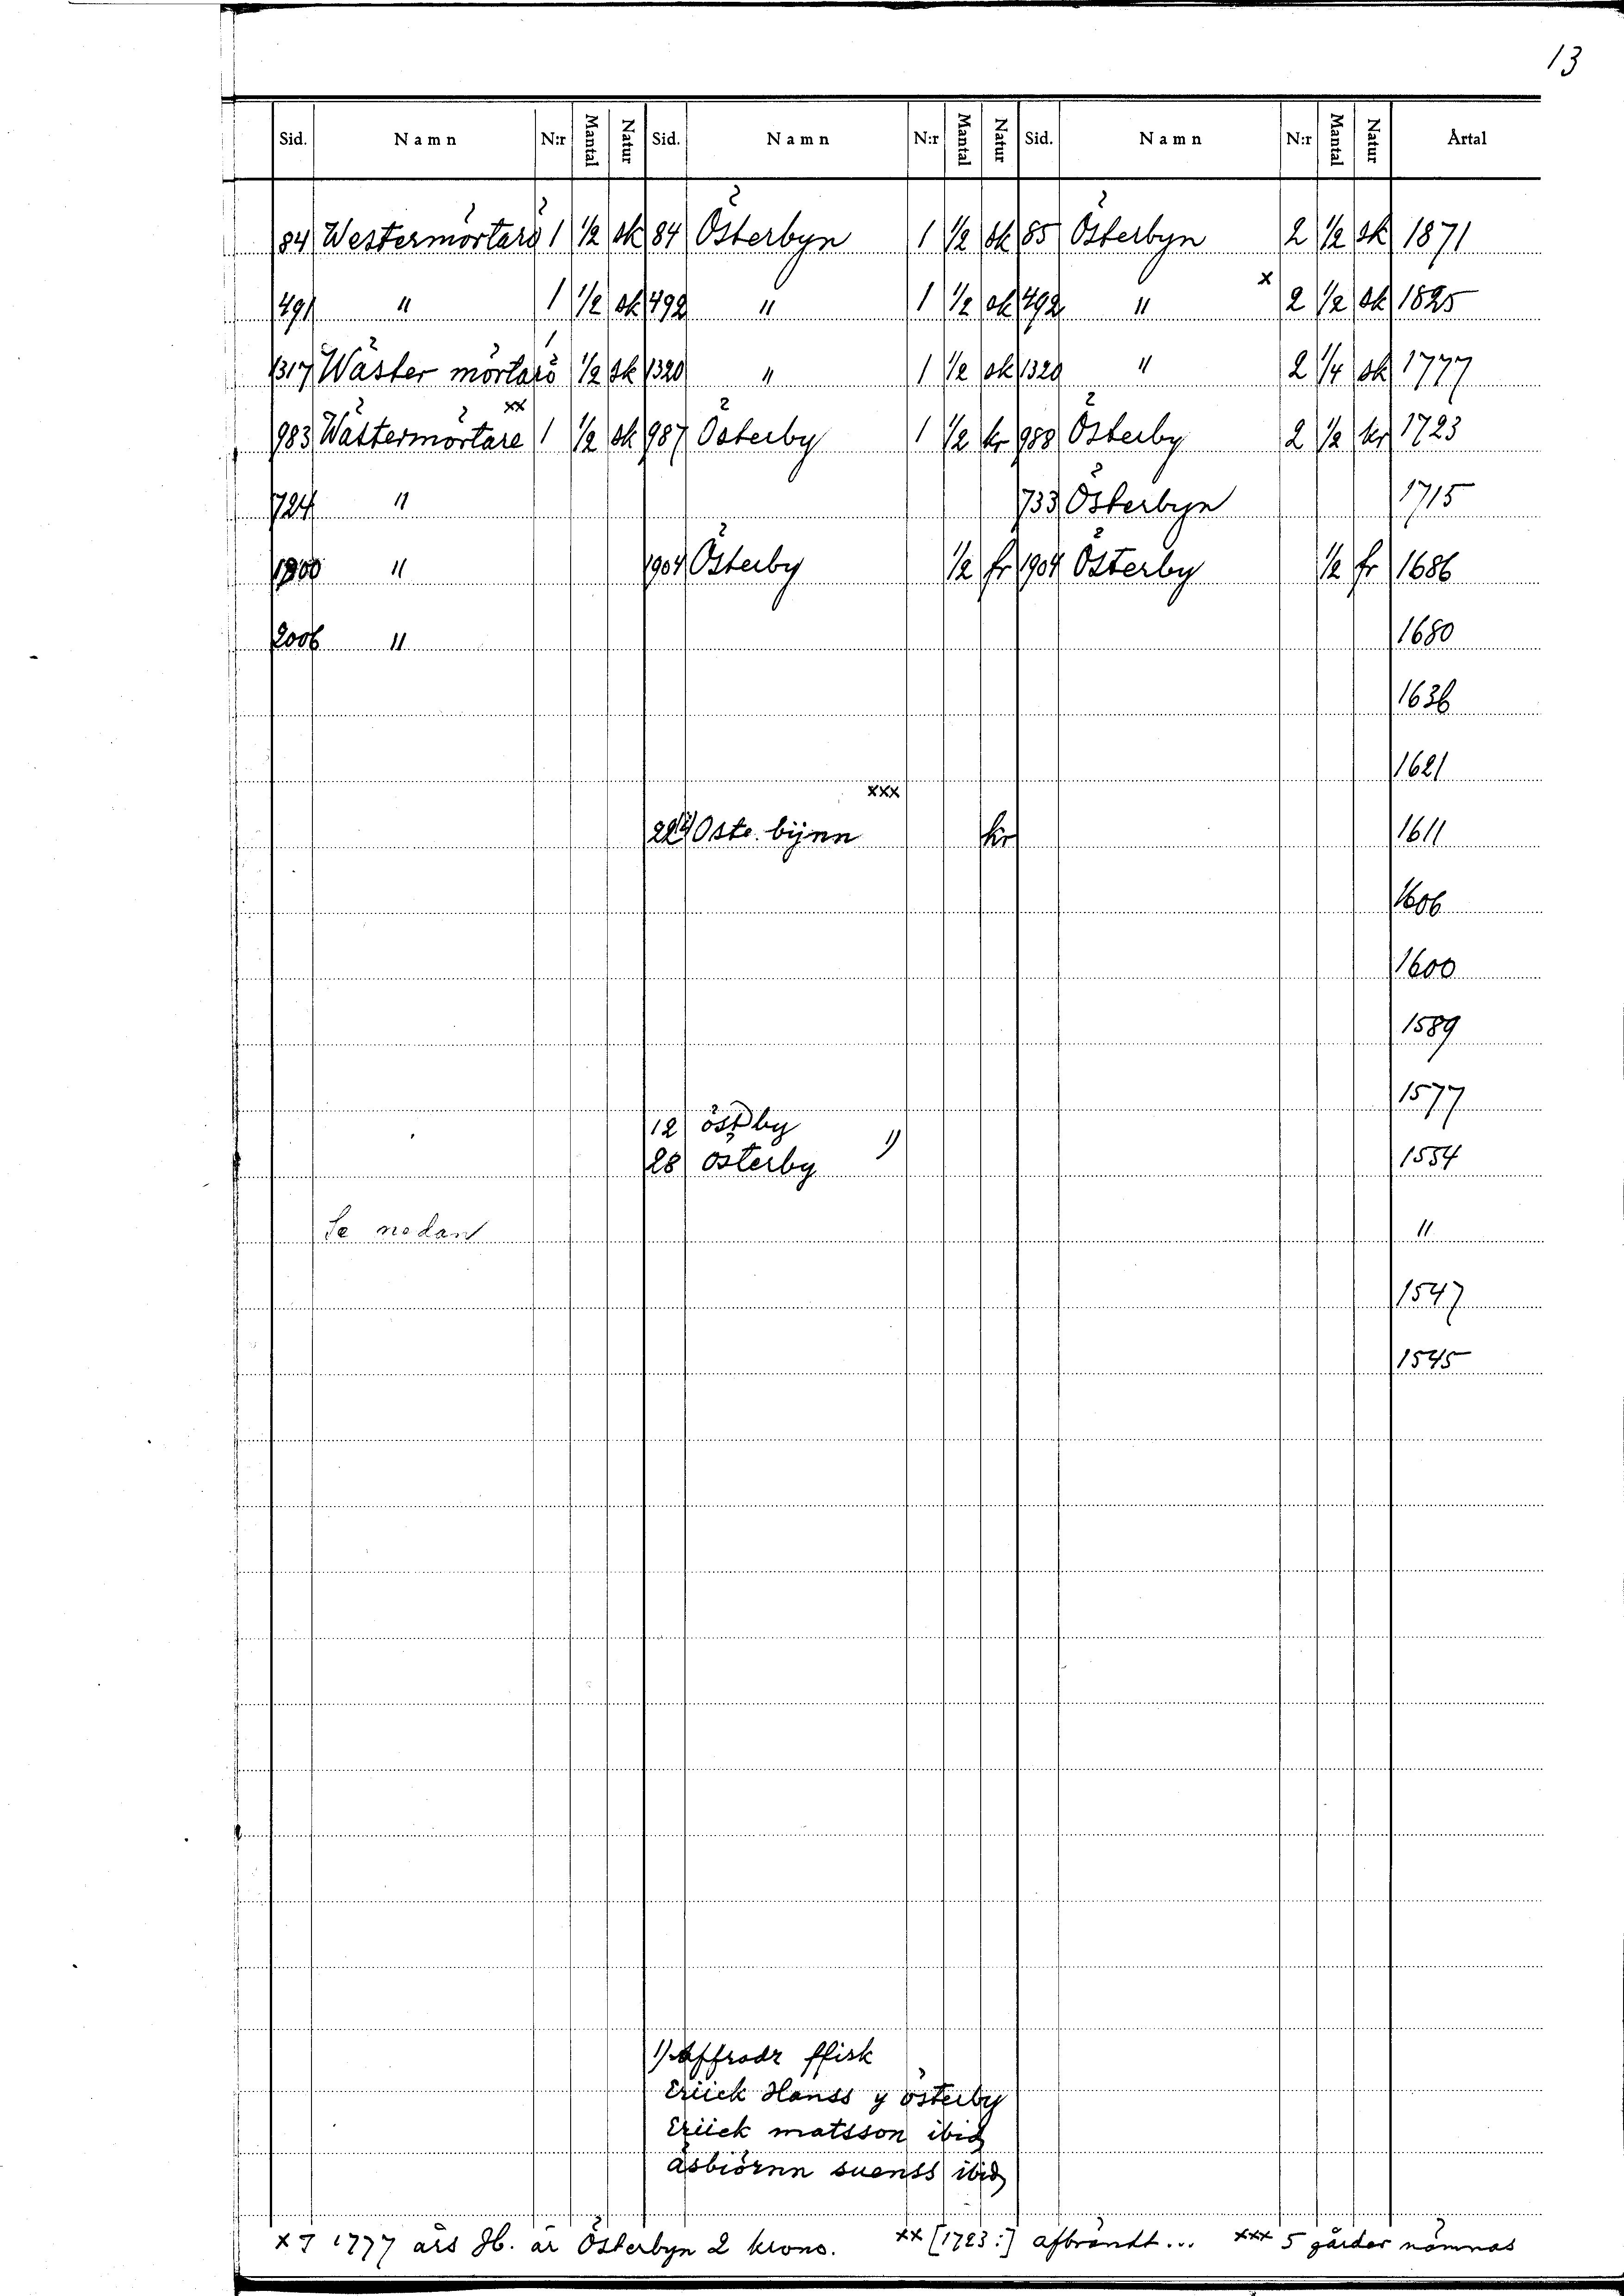 13
Sid. Namn N:r Mantal Natur Sid. Namn N:r Mantal Natur Sid. Namn N:r Mantal Natur Årtal
84 Westermörtarö 1 1/2 sk 84 Österbyn 1 1/2 sk 85 Österbyn 2 1/2 sk 1871
491 " 1 1/2 sk 492 " 1 1/2 sk 492 " x 2 1/2 sk 1825
1317 Wäster mörtarö 1 1/2 sk 1320 " 1 1/2 sk 1320 " 2 1/4 sk 1777
983 Wästermörtare xx 1 1/2 sk 987 Österby 1 1/2 kr 988 Österby 2 1/2 kr 1723
724 " 733 Österbyn 1715
1900 " 1904 Österby 1/2 fr 1904 Österby 1/2 fr 1686
2006 " 1680
1636
1621
Oste. bijnn xxx kr 1611
1606
1600
1589
1577
12 östby
28 österby 1) 1554
Se nedan "
1547
1545
1) Affradz ffisk
Eriick Hanss y österby
Eriick matsson ibid
åsbiörnn suenss ibid
x I 1777 års Jb. är Österbyn 2 krono. xx [1723:] afbrändt... xxx 5 gårdar nämnas